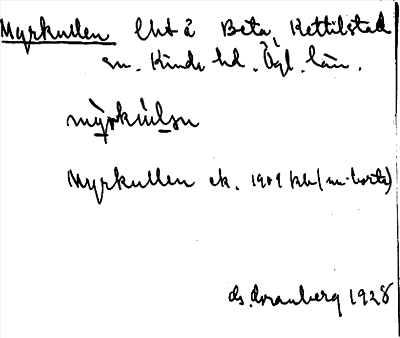 Myrkullen lht å Beta, Kettilstad
sn. Kinda hd. Ögl. län.
mỳrkúlsn
Myrkullen ek. 1909 kb (nu borta)
G. Franberg 1928